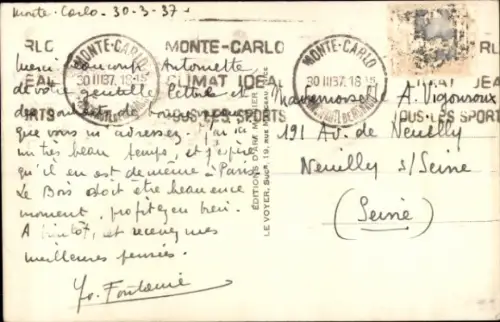 Monte-Carlo. 30-3-37.
RLO
EAL
RTS
MONTE-CARLO
30 III 37. 18 15
MONTE-CARLO
CLIMAT IDEAL
TOUS LES SPORTS
MONTE-CARLO
30 III 37. 18 15
JE
TOUS LES SPORT
Merci beaucoup Antoinette,
de votre gentille lettre et
des souhaits de bonne
que vous m'adressez. J'ai ici
un très beau temps, et j'espère
qu'il en est de même à Paris.
Le Bois doit être beau en ce
moment, profitez en bien.
A bientôt, et recevez mes
meilleures pensées.
Yo. Fontanié
EDITIONS D'ART
LE VOYER, Succr, 19, RUE
Mademoiselle A. Vigouroux
191 Av. de Neuilly
Neuilly s/Seine
(Seine)